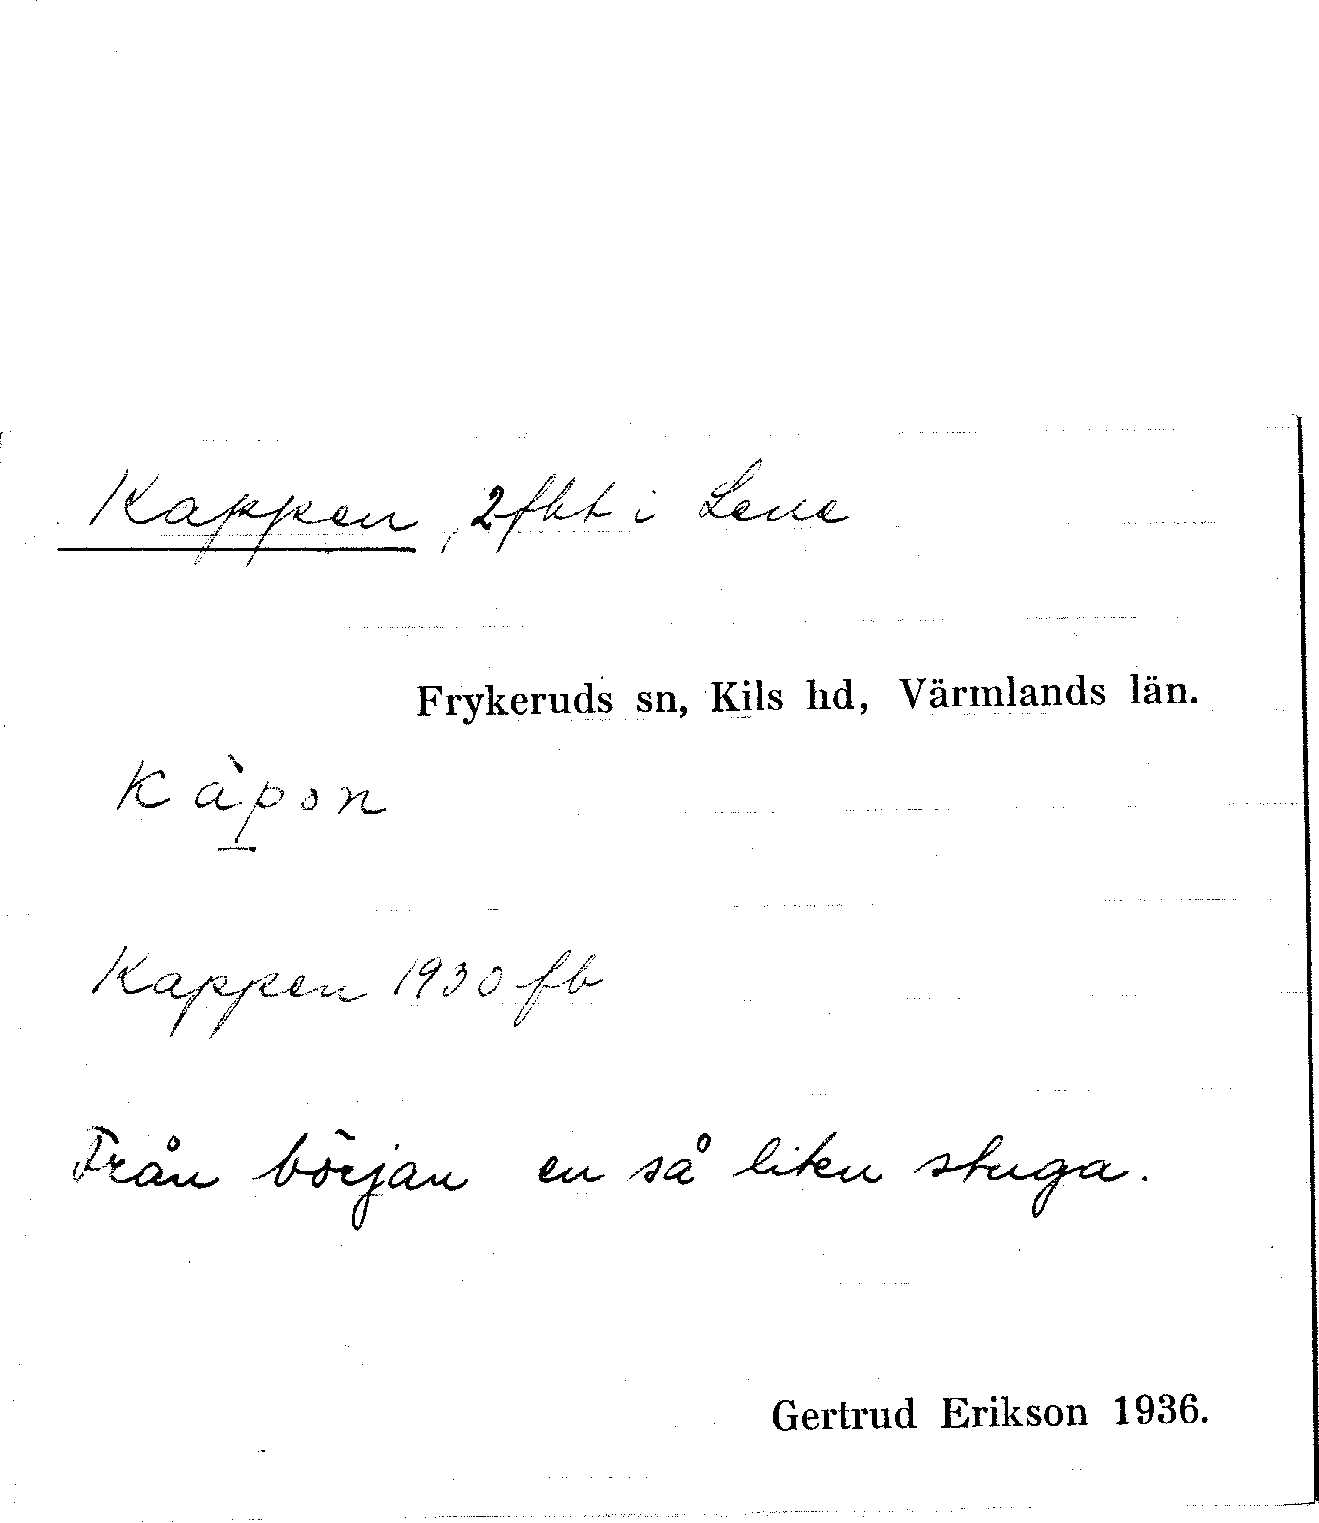 Kappen, 2 fbt i Lene
Frykeruds sn, Kils hd, Värmlands län.
Kàpon
Kappen 1930 fb
Från början en så liten stuga.
Gertrud Erikson 1936.